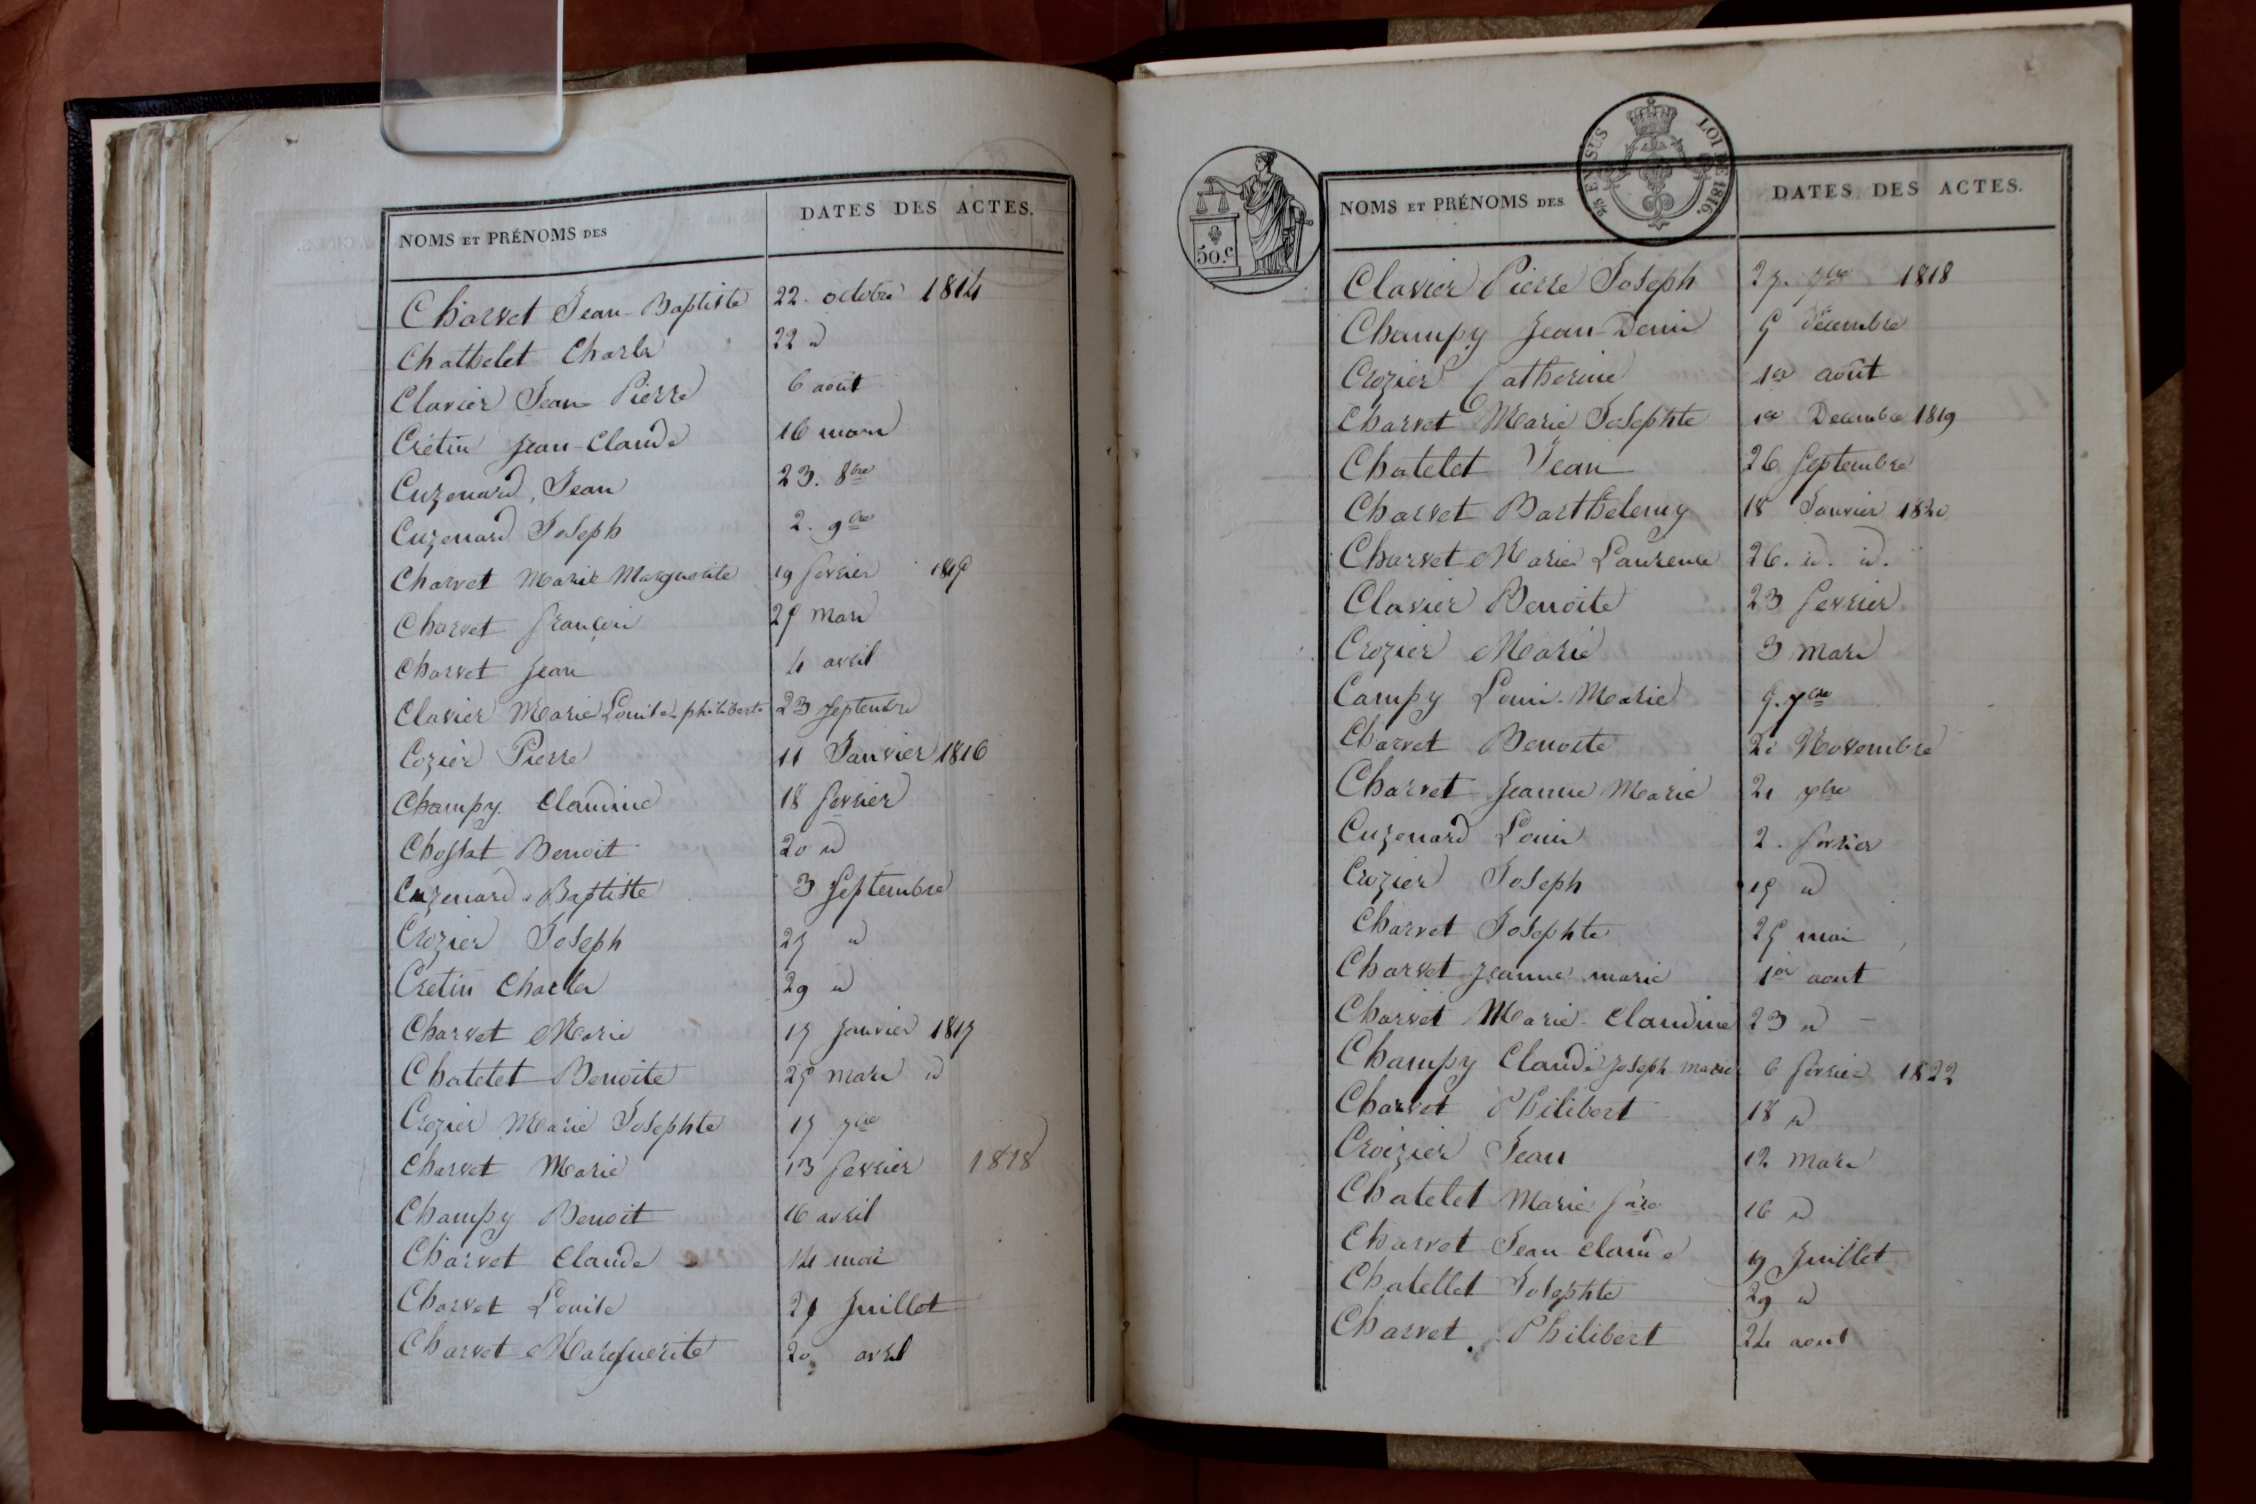 NOMS ET PRÉNOMS DES
DATES DES ACTES.
Charvet Jean-Baptiste 22. octobre 1814
Chathelet Charles 22 d
Clavier Jean Pierre 6 août
Crétin Jean-Claude 16 mars
Cuzenard, Jean 23. 8bre
Cuzenard Joseph 2. 9bre
Charvet Marie Marguerite 19 fevrier 1815
Charvet françois 25 mars
Charvet Jean 4 avril
Clavier Marie Louise philiberte 23 septembre
Cozier Pierre 11 Janvier 1816
Champy Claudine 18 fevrier
Chossat Benoit 20 d
Cuzenard Baptiste 3 Septembre
Crozier Joseph 27 d
Cretin Charles 29 d
Charvet Marie 17 Janvier 1817
Chatelet Benoite 25 mars d
Crozier Marie Josephte 17 7bre
Charvet Marie 13 fevrier 1818
Champy Benoit 16 avril
Charvet Claude 14 mai
Charvet Louise 21 Juillet
Charvet Marguerite 20 avril
50.C
LOI DE 1816.
NOMS ET PRÉNOMS DES
DATES DES ACTES.
Clavier Pierre Joseph 27. 7bre 1818
Champy Jean Denis 5 décembre
Crozier Catherine 1er août
Charvet Marie Josephte 1er Decembre 1819
Chatelet Jean 26 Septembre
Charvet Barthelemy 18 Janvier 1820
Charvet Marie Laurence 26. d. d.
Clavier Benoite 23 fevrier
Crozier Marie 3 mars
Campy Louis Marie 5. 7bre
Charvet Benoite 20 Novembre
Charvet Jeanne Marie 21 xbre
Cuzenard Louis 2. fevrier
Crozier Joseph 15 d
Charvet Josephte 25 mai
Charvet Jeanne marie 1er aout
Charvet Marie Claudine 23 d
Champy Claude Joseph marie 6 fevrier 1822
Charvet Philibert 18 d
Croizier Jean 12 mars
Chatelet Marie 16 d
Charvet Jean claude 19 Juillet
Chatellet Josephte 29 d
Charvet Philibert 24 aout